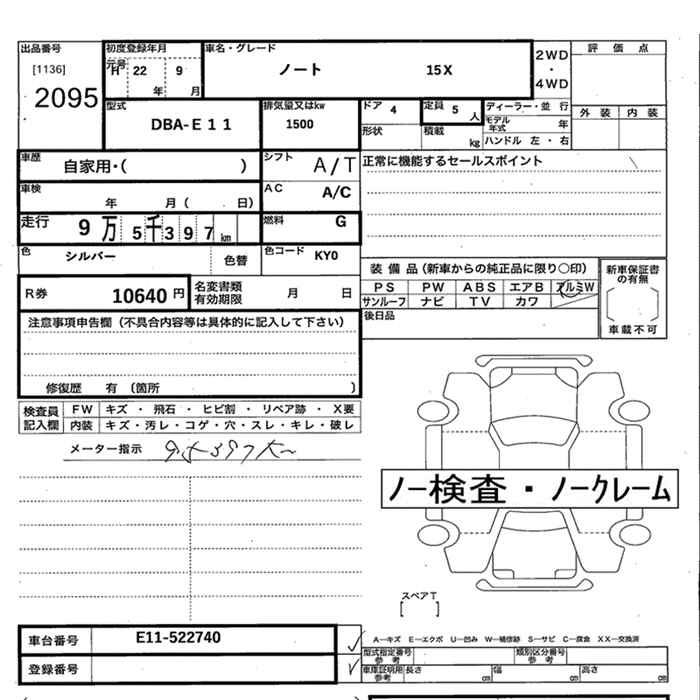 出品番号 初度登録年月 車名・グレード 2WD 評価点
[1136] 元号 H 22 9 ノート 15X ・
2095 年 月 4WD 外装 内装
型式 DBA-E11 排気量又はkw 1500 ドア 4 定員 5 人 ディーラー・並行
形状 積載 kg モデル年式 年
ハンドル 左・右
車歴 自家用・( ) シフト A/T 正常に機能するセールスポイント
車検 年 月( 日) AC A/C
走行 9万5千397km 燃料 G
色 シルバー 色替 色コード KY0
装備品(新車からの純正品に限り○印) 新車保証書の有無
PS PW ABS エアB アルミW
サンルーフ ナビ TV カワ 車載不可
R券 10640円 名変書類有効期限 月 日
後日品
注意事項申告欄(不具合内容等は具体的に記入して下さい)
修復歴 有 (箇所 )
検査員 FW キズ・飛石・ヒビ割・リペア跡・X要
記入欄 内装 キズ・汚レ・コゲ・穴・スレ・キレ・破レ
メーター指示
ノー検査・ノークレーム
スペアT
[ ]
車台番号 E11-522740
登録番号
A—キズ E—エクボ U—凹み W—補修跡 S—サビ C—腐食 XX—交換済
型式指定番号 参考 類別区分番号 参考
車庫証明用 参考 長さ cm 幅 cm 高さ cm